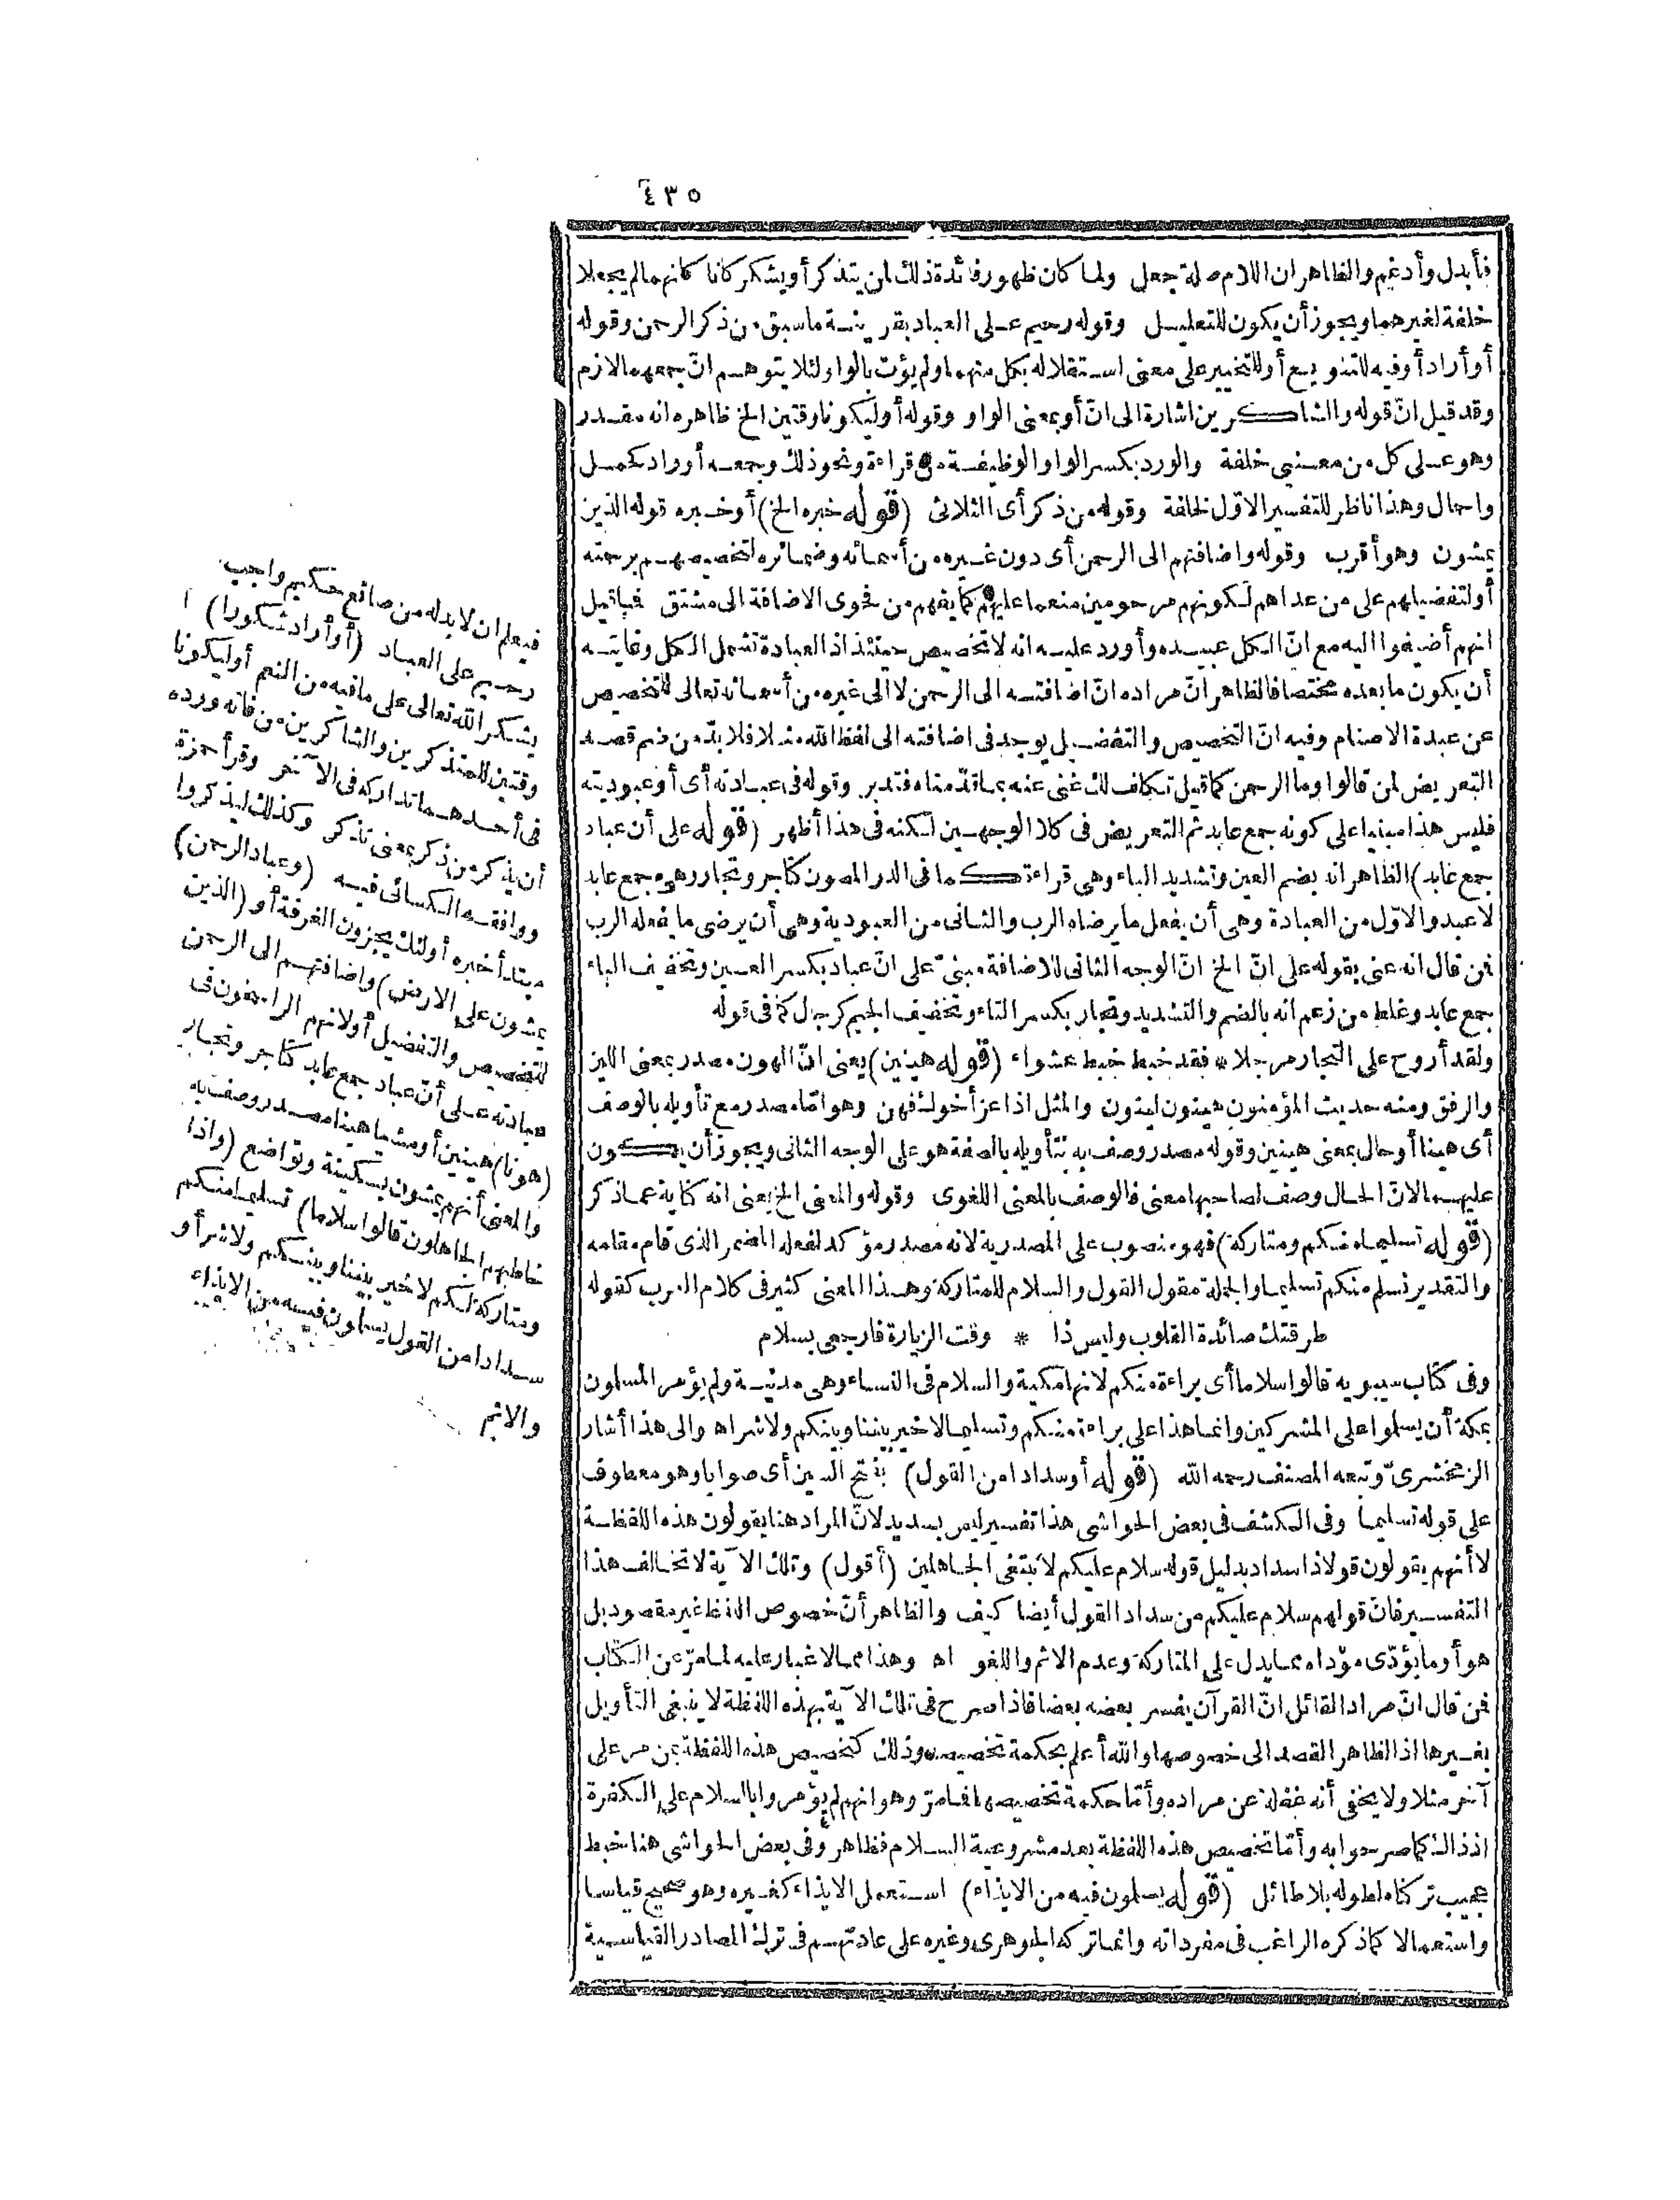 ٤٣٥
فأبدل وأدغم والظاهر ان اللام صلة جعل ولما كان ظهور فائدة ذلك لمن يتذكر أو يشكر كانا كانهما لم يجعلا
خلفة لغيرهما ويجوز أن يكون للتعليل وقوله رحيم على العباد بقرينة ما سبق من ذكر الرحمن وقوله
أو أراد أو فيه للتنويع أو للتخيير على معنى استقلاله بكل منهما ولم يؤت بالواو لئلا يتوهم انّ جمعهما لازم
وقد قيل انّ قوله والشاكرين اشارة الى انّ أو بمعنى الواو وقوله أو ليكونا وقتين الخ ظاهره انه مقدر
وهو على كل من معنيى خلفة والورد بكسر الواو الوظيفة من قراءة ونحو ذلك وجمعه أوراد كحمل
واحمال وهذا ناظر للتفسير الاوّل لخلفة وقوله من ذكر أى الثلاثى (قوله خبره الخ) أو خبره قوله الذين
يمشون وهو أقرب وقوله واضافتهم الى الرحمن أى دون غيره من أسمائه وضمائره لتخصيصهم برحمته
أو لتفضيلهم على من عداهم لكونهم مرحومين منعما عليهم كما يفهم من فحوى الاضافة الى مشتق فما قيل
انهم أضيفوا اليه مع انّ الكل عبيده وأورد عليه انه لا تخصيص حينئذ اذ العبادة تشمل الكل وغايته
أن يكون ما بعده مختصا فالظاهر انّ مراده انّ اضافته الى الرحمن لا الى غيره من أسمائه تعالى للتخصيص
عن عبدة الاصنام وفيه انّ التخصيص والتفضيل يوجد فى اضافته الى لفظ الله مثلا فلا بدّ من ضم قصد
التعريض لمن قالوا وما الرحمن كما قيل تكلف لك غنى عنه بما قدّمناه فتدبر وقوله فى عبادته أى أو عبوديته
فليس هذا مبنيا على كونه جمع عابد ثم التعريض فى كلا الوجهين لكنه فى هذا أظهر (قوله على أن عباد
جمع عابد) الظاهر انه بضم العين وتشديد الباء وهى قراءة كما فى الدر المصون كتاجر وتجار وهو جمع عابد
لا عبد والاوّل من العبادة وهى أن يفعل ما يرضاه الرب والثانى من العبودية وهى أن يرضى ما يفعله الرب
فمن قال انه عنى بقوله على انّ الخ انّ الوجه الثانى للاضافة مبنىّ على انّ عباد بكسر العين وتخفيف الباء
جمع عابد وغلط من زعم انه بالضم والتشديد وتجار بكسر التاء وتخفيف الجيم كرجال كما فى قوله
ولقد أروح على التجار مرجلا * فقد خبط خبط عشواء (قوله هينين) يعنى انّ الهون مصدر بمعنى اللين
والرفق ومنه حديث المؤمنون هينون لينون والمثل اذا عز أخوك فهن وهو امّا مصدر مع تأويله بالوصف
أى هينا أو حال بمعنى هينين وقوله مصدر وصف به بتأويله بالصفة هو على الوجه الثانى ويجوز أن يكون
عليهما لانّ الحال وصف لصاحبها معنى فالوصف بالمعنى اللغوى وقوله والمعنى الخ يعنى انه كناية عما ذكر
(قوله تسليما منكم ومتاركة) فهو منصوب على المصدرية لانه مصدر مؤكد لفعله المضمر الذى قام مقامه
والتقدير نسلم منكم تسليما والجملة مقول القول والسلام للمتاركة وهذا المعنى كثير فى كلام العرب كقوله
طرقتك صائدة القلوب وليس ذا * وقت الزيارة فارجعى بسلام
وفى كتاب سيبويه قالوا سلاما أى براءة منكم لانها مكية والسلام فى النساء وهى مدنية ولم يؤمر المسلمون
بمكة أن يسلموا على المشركين وانما هذا على براءة منكم وتسليما لا خير بيننا وبينكم ولا شر اه والى هذا أشار
الزمخشرىّ وتبعه المصنف رحمه الله (قوله أو سدادا من القول) بفتح السين أى صوابا وهو معطوف
على قوله تسليما وفى الكشف فى بعض الحواشى هذا تفسير ليس بسديد لانّ المراد هنا يقولون هذه اللفظة
لا أنهم يقولون قولا ذا سداد بدليل قوله سلام عليكم لا نبتغى الجاهلين (أقول) وتلك الآية لا تخالف هذا
التفسير فانّ قولهم سلام عليكم من سداد القول أيضا كيف والظاهر أنّ خصوص اللفظ غير مقصود بل
هو أو ما يؤدّى مؤدّاه مما يدل على المتاركة وعدم الاثم واللغو اه وهذا مما لا غبار عليه لما مرّ عن الكتاب
فمن قال انّ مراد القائل انّ القرآن يفسر بعضه بعضا فاذا صرح فى تلك الآية بهذه اللفظة لا ينبغى التأويل
بغيرها اذ الظاهر القصد الى خصوصها والله أعلم بحكمة تخصيصه وذلك كتخصيص هذه اللفظة بمن مر على
آخر مثلا ولا يخفى أنه غفلة عن مراده وأمّا حكمة تخصيصها فما مرّ وهو انهم لم يؤمروا بالسلام على الكفرة
اذ ذاك كما صرحوا به وأمّا تخصيص هذه اللفظة بعد مشروعية السلام فظاهر وفى بعض الحواشى هنا خبط
عجيب تركناه لطوله بلا طائل (قوله يسلمون فيه من الايذاء) استعمل الايذاء كغيره وهو صحيح قياسا
واستعمالا كما ذكره الراغب فى مفرداته وانما تركه الجوهرى وغيره على عادتهم فى ترك المصادر القياسية
فيعلم ان لا بد له من صانع حكيم واجب
رحيم على العباد (أو أراد شكورا)
يشكر الله تعالى على ما فيه من النعم أو ليكونا
وقتين للمتذكرين والشاكرين من فاته ورده
فى أحدهما تداركه فى الآخر وقرأ حمزة
أن يذكر من ذكر بمعنى تذكر وكذلك ليذكروا
ووافقه الكسائى فيه (وعباد الرحمن)
مبتدأ خبره أولئك يجزون الغرفة أو (الذين
يمشون على الارض) واضافتهم الى الرحمن
للتخصيص والتفضيل أو لانهم الراسخون فى
عبادته على أنّ عباد جمع عابد كتاجر وتجار
(هونا) هينين أو مشيا هينا مصدر وصف به
والمعنى أنهم يمشون بسكينة وتواضع (واذا
خاطبهم الجاهلون قالوا سلاما) تسليما منكم
ومتاركة لكم لا خير بيننا وبينكم ولا شر أو
سدادا من القول يسلمون فيه من الايذاء
والاثم